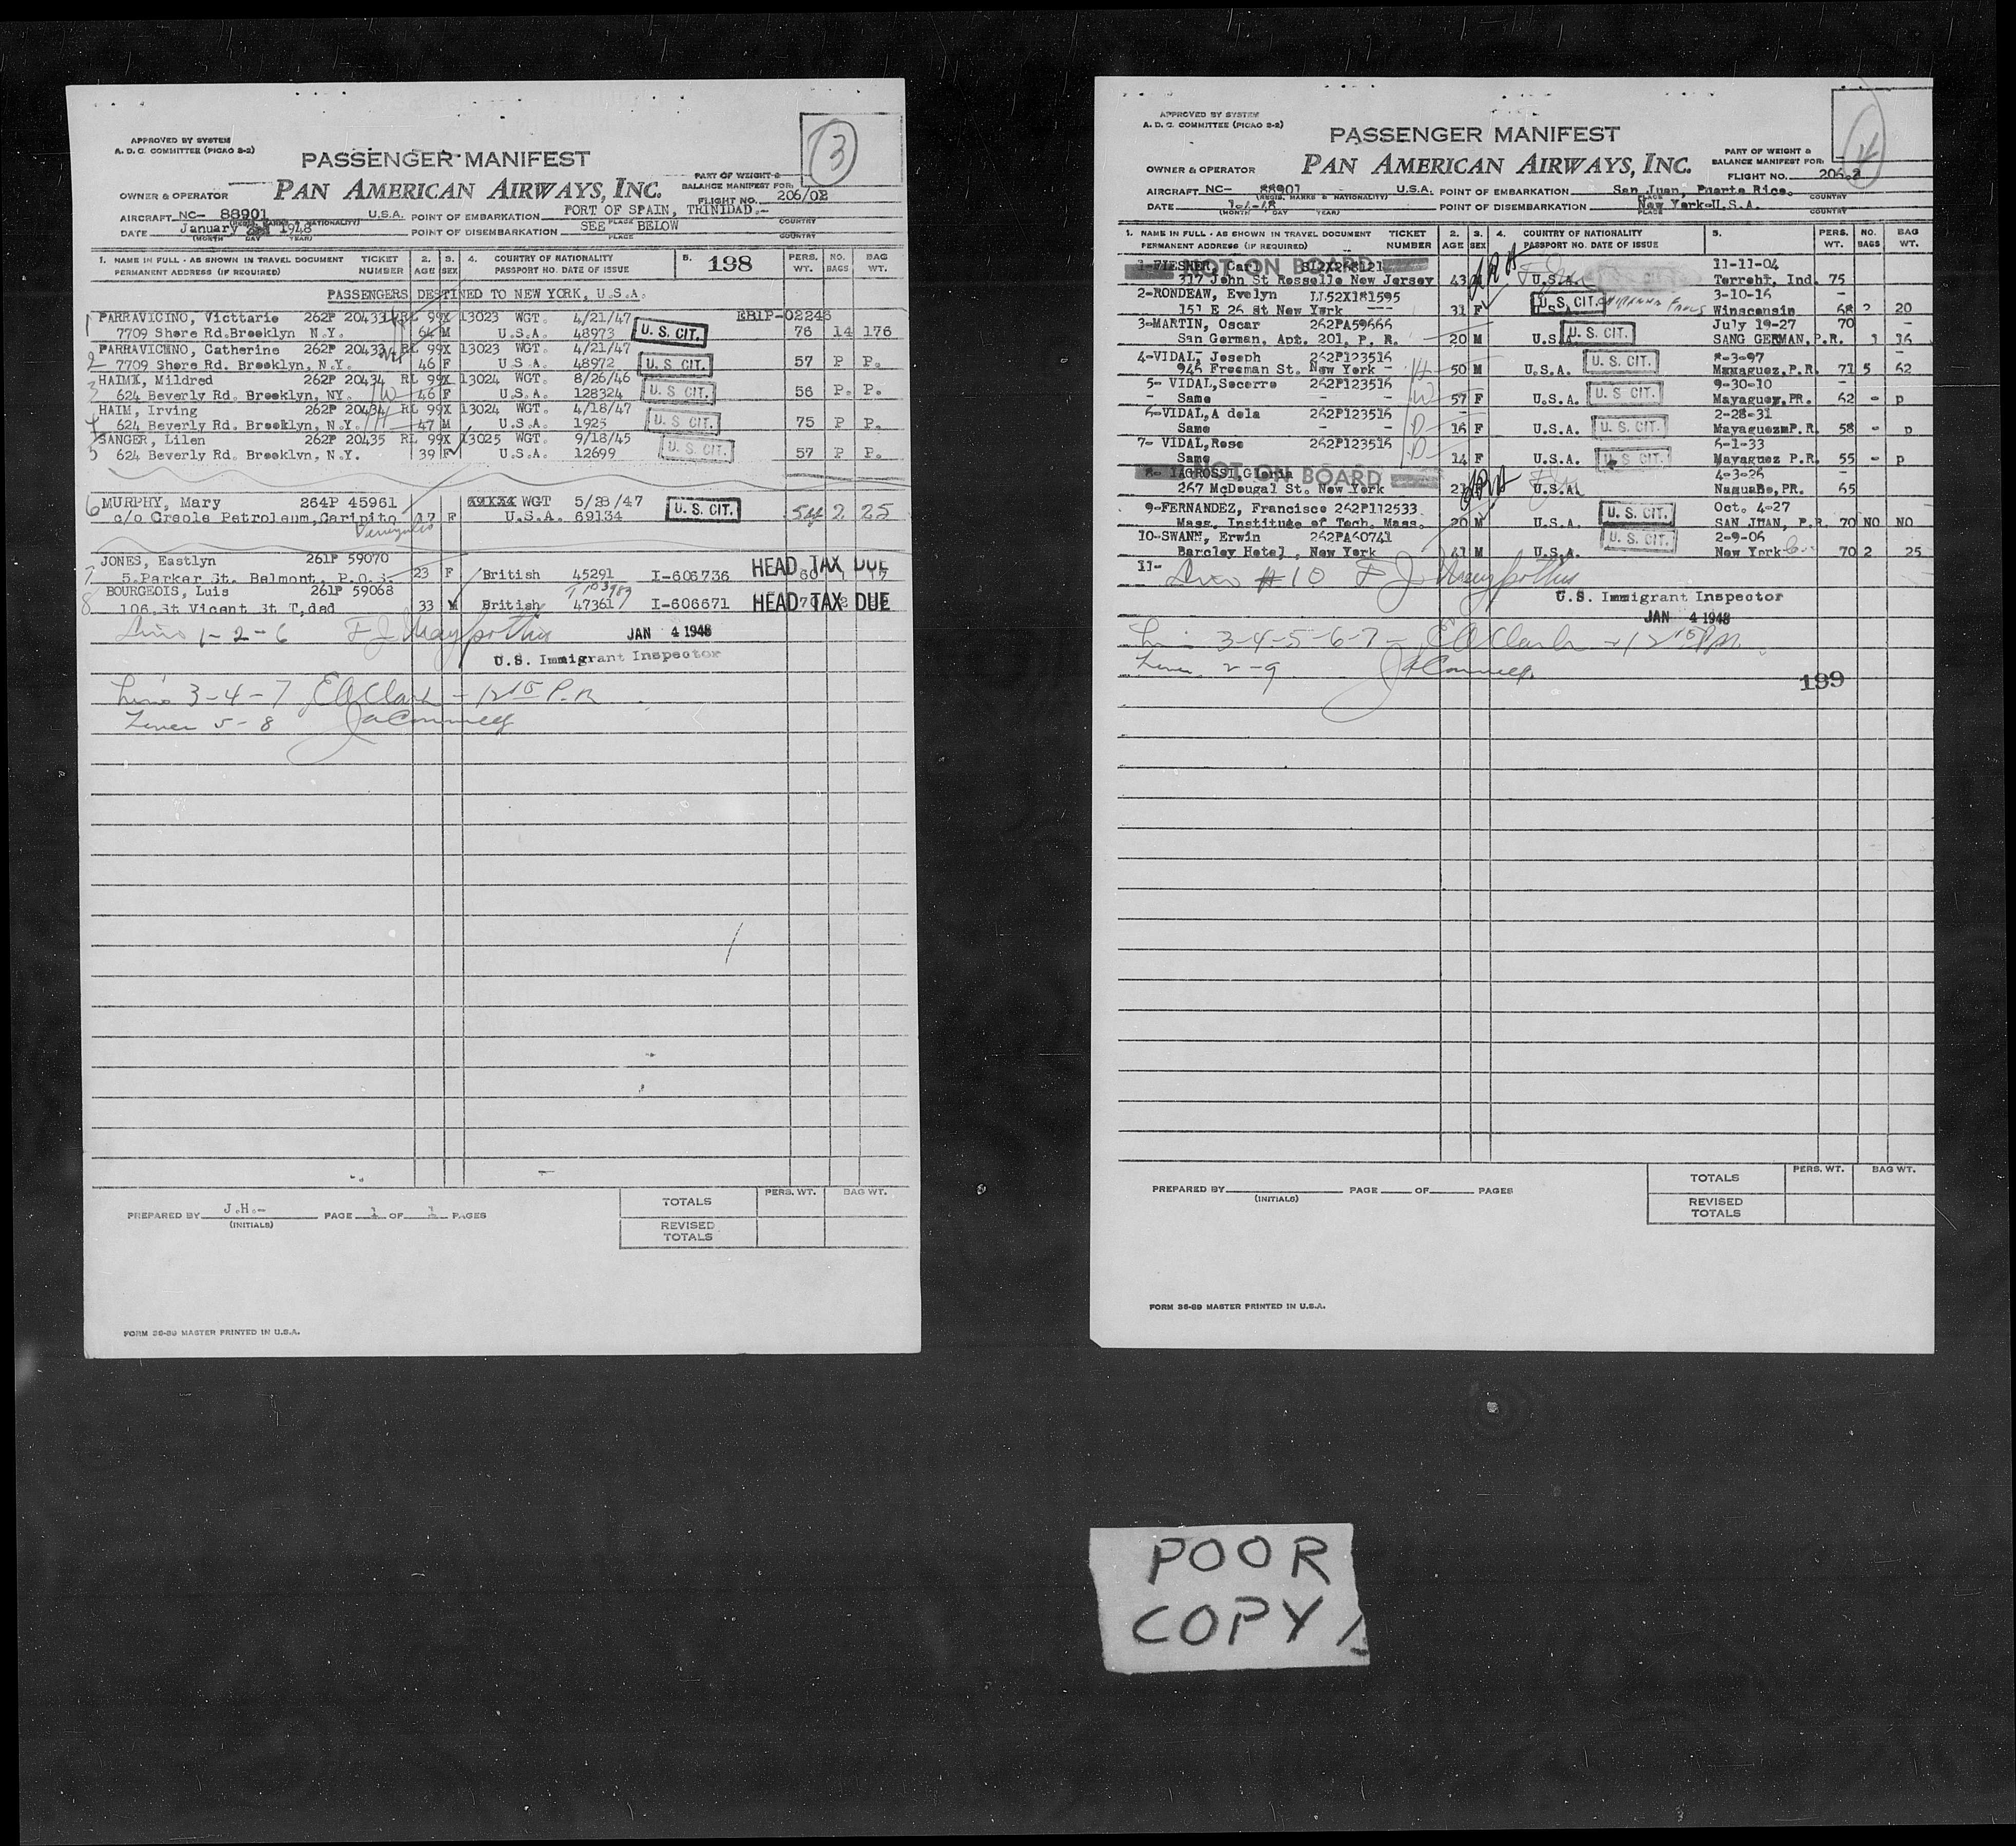 APPROVED BY SYSTEM
A. D. C. COMMITTEE (PICAO S-2)
3
PASSENGER MANIFEST
PART OF WEIGHT &
OWNER & OPERATOR PAN AMERICAN AIRWAYS, INC. BALANCE MANIFEST FOR:
FLIGHT NO. 206/02
AIRCRAFT NC- 88901 U.S.A. POINT OF EMBARKATION PORT OF SPAIN, TRINIDAD.-
(REGIS. MARKS & NATIONALITY) PLACE COUNTRY
DATE January 1948 POINT OF DISEMBARKATION SEE BELOW
(MONTH DAY YEAR) PLACE COUNTRY
1. NAME IN FULL - AS SHOWN IN TRAVEL DOCUMENT TICKET 2. 3. 4. COUNTRY OF NATIONALITY 5. 198 PERS. NO. BAG
PERMANENT ADDRESS (IF REQUIRED) NUMBER AGE SEX PASSPORT NO. DATE OF ISSUE WT. BAGS WT.
PASSENGERS DESTINED TO NEW YORK, U.S.A.
1 PARRAVICINO, Victtarie 262P 20433 RL 99X 13023 WGT. 4/21/47 EBIP-02246
7709 Shore Rd.Brooklyn N.Y. 64 M U.S.A. 48973 U. S. CIT. 76 14 176
2 PARRAVICMNO, Catherine 262P 20433 RL 99X 13023 WGT. 4/21/47
7709 Shore Rd. Brooklyn, N.Y. 46 F U.S.A. 48972 U. S. CIT. 57 P P.
3 HAIMX, Mildred 262P 20434 RL 99X 13024 WGT. 8/26/46
624 Beverly Rd. Brooklyn, NY. W 46 F U.S.A. 128324 U. S. CIT. 56 P. P.
4 HAIM, Irving 262P 20434 RL 99X 13024 WGT. 4/18/47
624 Beverly Rd. Brooklyn, N.Y. H 47 M U.S.A. 1925 U. S. CIT. 75 P P
5 SANGER, Lilen 262P 20435 RL 99X 13025 WGT. 9/18/45
624 Beverly Rd. Brooklvn, N.Y. 39 F U.S.A. 12699 U. S. CIT. 57 P P.
6 MURPHY, Mary 264P 45961 WGT 5/28/47
c/o Creole Petroleum,Caripito 17 F U.S.A. 69134 U. S. CIT. 54 2 25
Venezuela
JONES, Eastlyn 261P 59070
7 5.Parker St. Belmont, P.O.S. 23 F British 45291 I-606736 HEAD TAX DUE
BOURGEOIS, Luis 261P 59068
8 106.St Vicent St T,dad 33 M British 47361 I-606671 HEAD TAX DUE
Lines 1-2-6 JAN 4 1948
U.S. Immigrant Inspector
Lines 3-4-7 E A Clark - 12 15 P.M.
Lines 5-8
PREPARED BY J.H.- PAGE 1 OF 1 PAGES
(INITIALS)
PERS. WT. BAG WT.
TOTALS
REVISED
TOTALS
FORM 36-89 MASTER PRINTED IN U.S.A.
APPROVED BY SYSTEM
A. D. C. COMMITTEE (PICAO S-2)
4
PASSENGER MANIFEST
PART OF WEIGHT &
OWNER & OPERATOR PAN AMERICAN AIRWAYS, INC. BALANCE MANIFEST FOR:
FLIGHT NO. 206-2
AIRCRAFT NC- 88901 U.S.A. POINT OF EMBARKATION San Juan, Puerto Rico.
(REGIS. MARKS & NATIONALITY) PLACE COUNTRY
DATE 1-4-48 POINT OF DISEMBARKATION New York-U.S.A.
(MONTH DAY YEAR) PLACE COUNTRY
1. NAME IN FULL - AS SHOWN IN TRAVEL DOCUMENT TICKET 2. 3. 4. COUNTRY OF NATIONALITY 5. PERS. NO. BAG
PERMANENT ADDRESS (IF REQUIRED) NUMBER AGE SEX PASSPORT NO. DATE OF ISSUE WT. BAGS WT.
NOT ON BOARD
1-FIESNER, Carl 11-11-04
317 John St Rosselle New Jersey 43 U.S.A. Terreht, Ind. 75
2-RONDEAW, Evelyn LL52X181595 3-10-16 -
151 E 26 St New York 31 F U.S.A. U. S. CIT. Winsconsin 68 2 20
3-MARTIN, Oscar 262PA59666 July 19-27 70 -
San German, Apt. 201, P. R. 20 M U.S.A. U. S. CIT. SANG GERMAN,P.R. 1 36
4-VIDAL, Joseph 262P123516 8-3-97
946 Freeman St. New York - H 50 M U.S.A. U. S. CIT. Mamaguez,P.R. 71 5 62
5- VIDAL,Socorro 262P123516 9-30-10 -
Same - - W 57 F U.S.A. U. S. CIT. Mayaguey,PR. 62 - p
6-VIDAL,A dela 262P123516 2-28-31
Same - - D 16 F U.S.A. U. S. CIT. MayaguezmP.R. 58 - p
7- VIDAL,Rose 262P123516 6-1-33
Same D 14 F U.S.A. U. S. CIT. Mayaguez P.R. 55 - p
NOT ON BOARD
8- IAGROSSI,Gloria 4-3-26
267 McDougal St. New York U.S.A. Naguabo,PR. 65
9-FERNANDEZ, Francisco 262P112533 Oct. 4-27
Mass. Institute of Tech. Mass. 20 M U.S.A. U. S. CIT. SAN JUAN, P.R. 70 NO NO
10-SWANN, Erwin 262PA60741 2-9-06
Barcley Hotel, New York 41 M U.S.A. U. S. CIT. New York 70 2 25
11-
Line #10
U.S. Immigrant Inspector
JAN 4 1948
Lines 3-4-5-6-7- E A Clark - 12 15 P.M.
Lines 2-9
199
PREPARED BY PAGE OF PAGES
(INITIALS)
PERS. WT. BAG WT.
TOTALS
REVISED
TOTALS
FORM 36-89 MASTER PRINTED IN U.S.A.
POOR
COPY